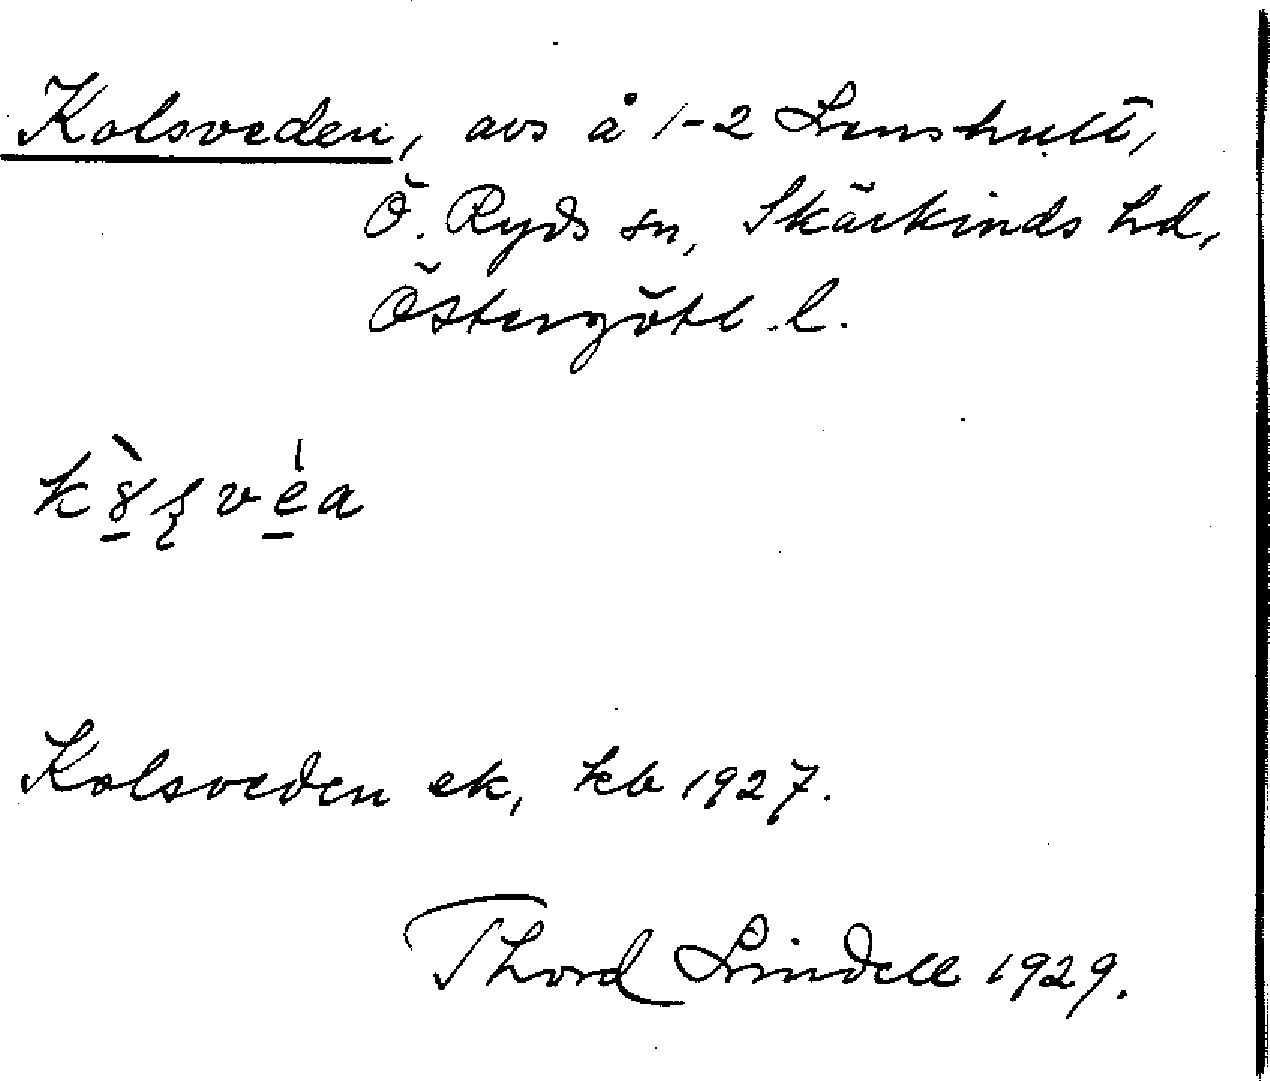 Kolsveden, avs å 1-2 Lenshult,
Ö. Ryds sn, Skärkinds hd,
Östergötl. l.
Kolsveden ek, kb 1927.
Thord Lindell 1929.